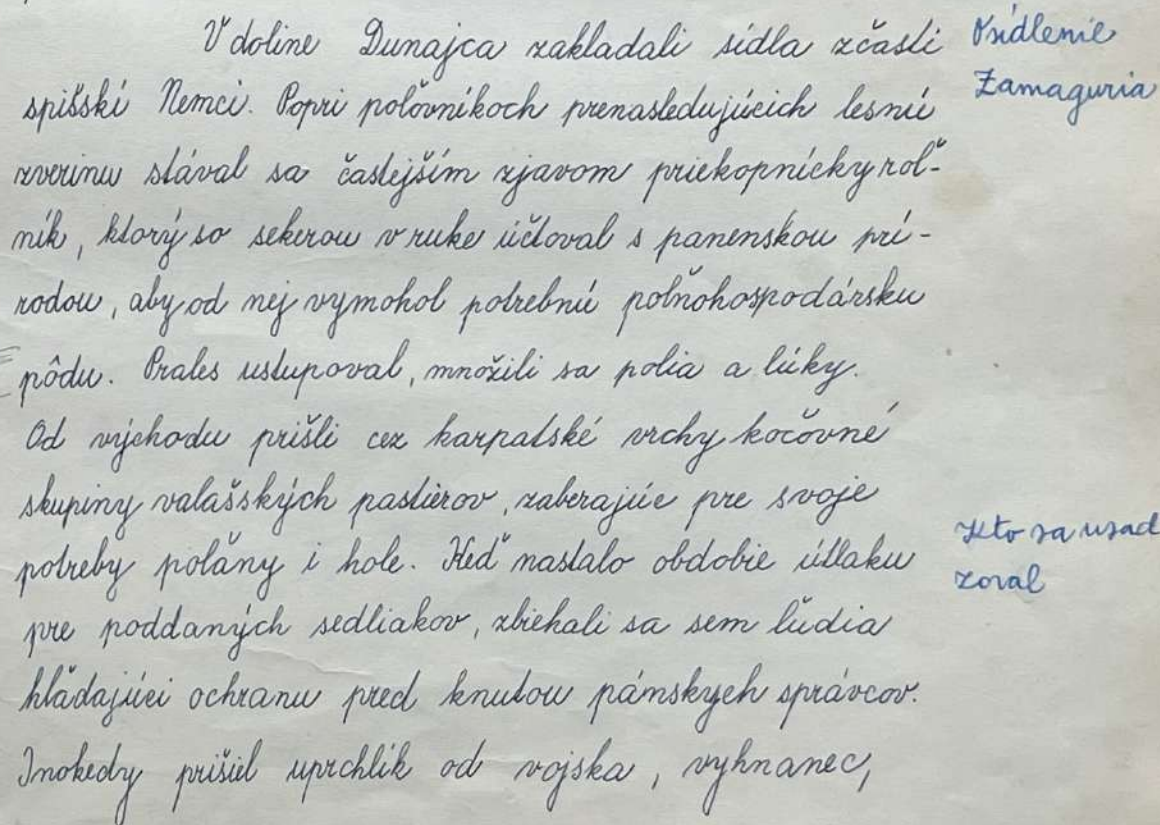 V doline Dunajca zakladali sídla zčasti
spišskí Nemci. Popri poľovníkoch prenasledujúcich lesnú
zverinu stával sa častejším zjavom priekopnícky roľ-
ník, ktorý so sekerou v ruke účtoval s panenskou prí-
rodou, aby od nej vymohol potrebnú poľnohospodársku
pôdu. Prales ustupoval, množili sa polia a lúky.
Od východu prišli cez karpatské vrchy kočovné
skupiny valašských pastierov, zaberajúce pre svoje
potreby poľany i hole. Keď nastalo obdobie útlaku
pre poddaných sedliakov, zbiehali sa sem ľudia
hľadajúci ochranu pred knutou pánskych správcov.
Inokedy prišiel uprchlík od vojska, vyhnanec,
Osídlenie
Zamaguria
Kto sa usad
zoral